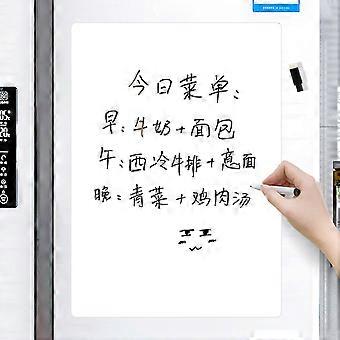 今日菜单:
早:牛奶+面包
午:西冷牛排+意面
晚:青菜+鸡肉汤